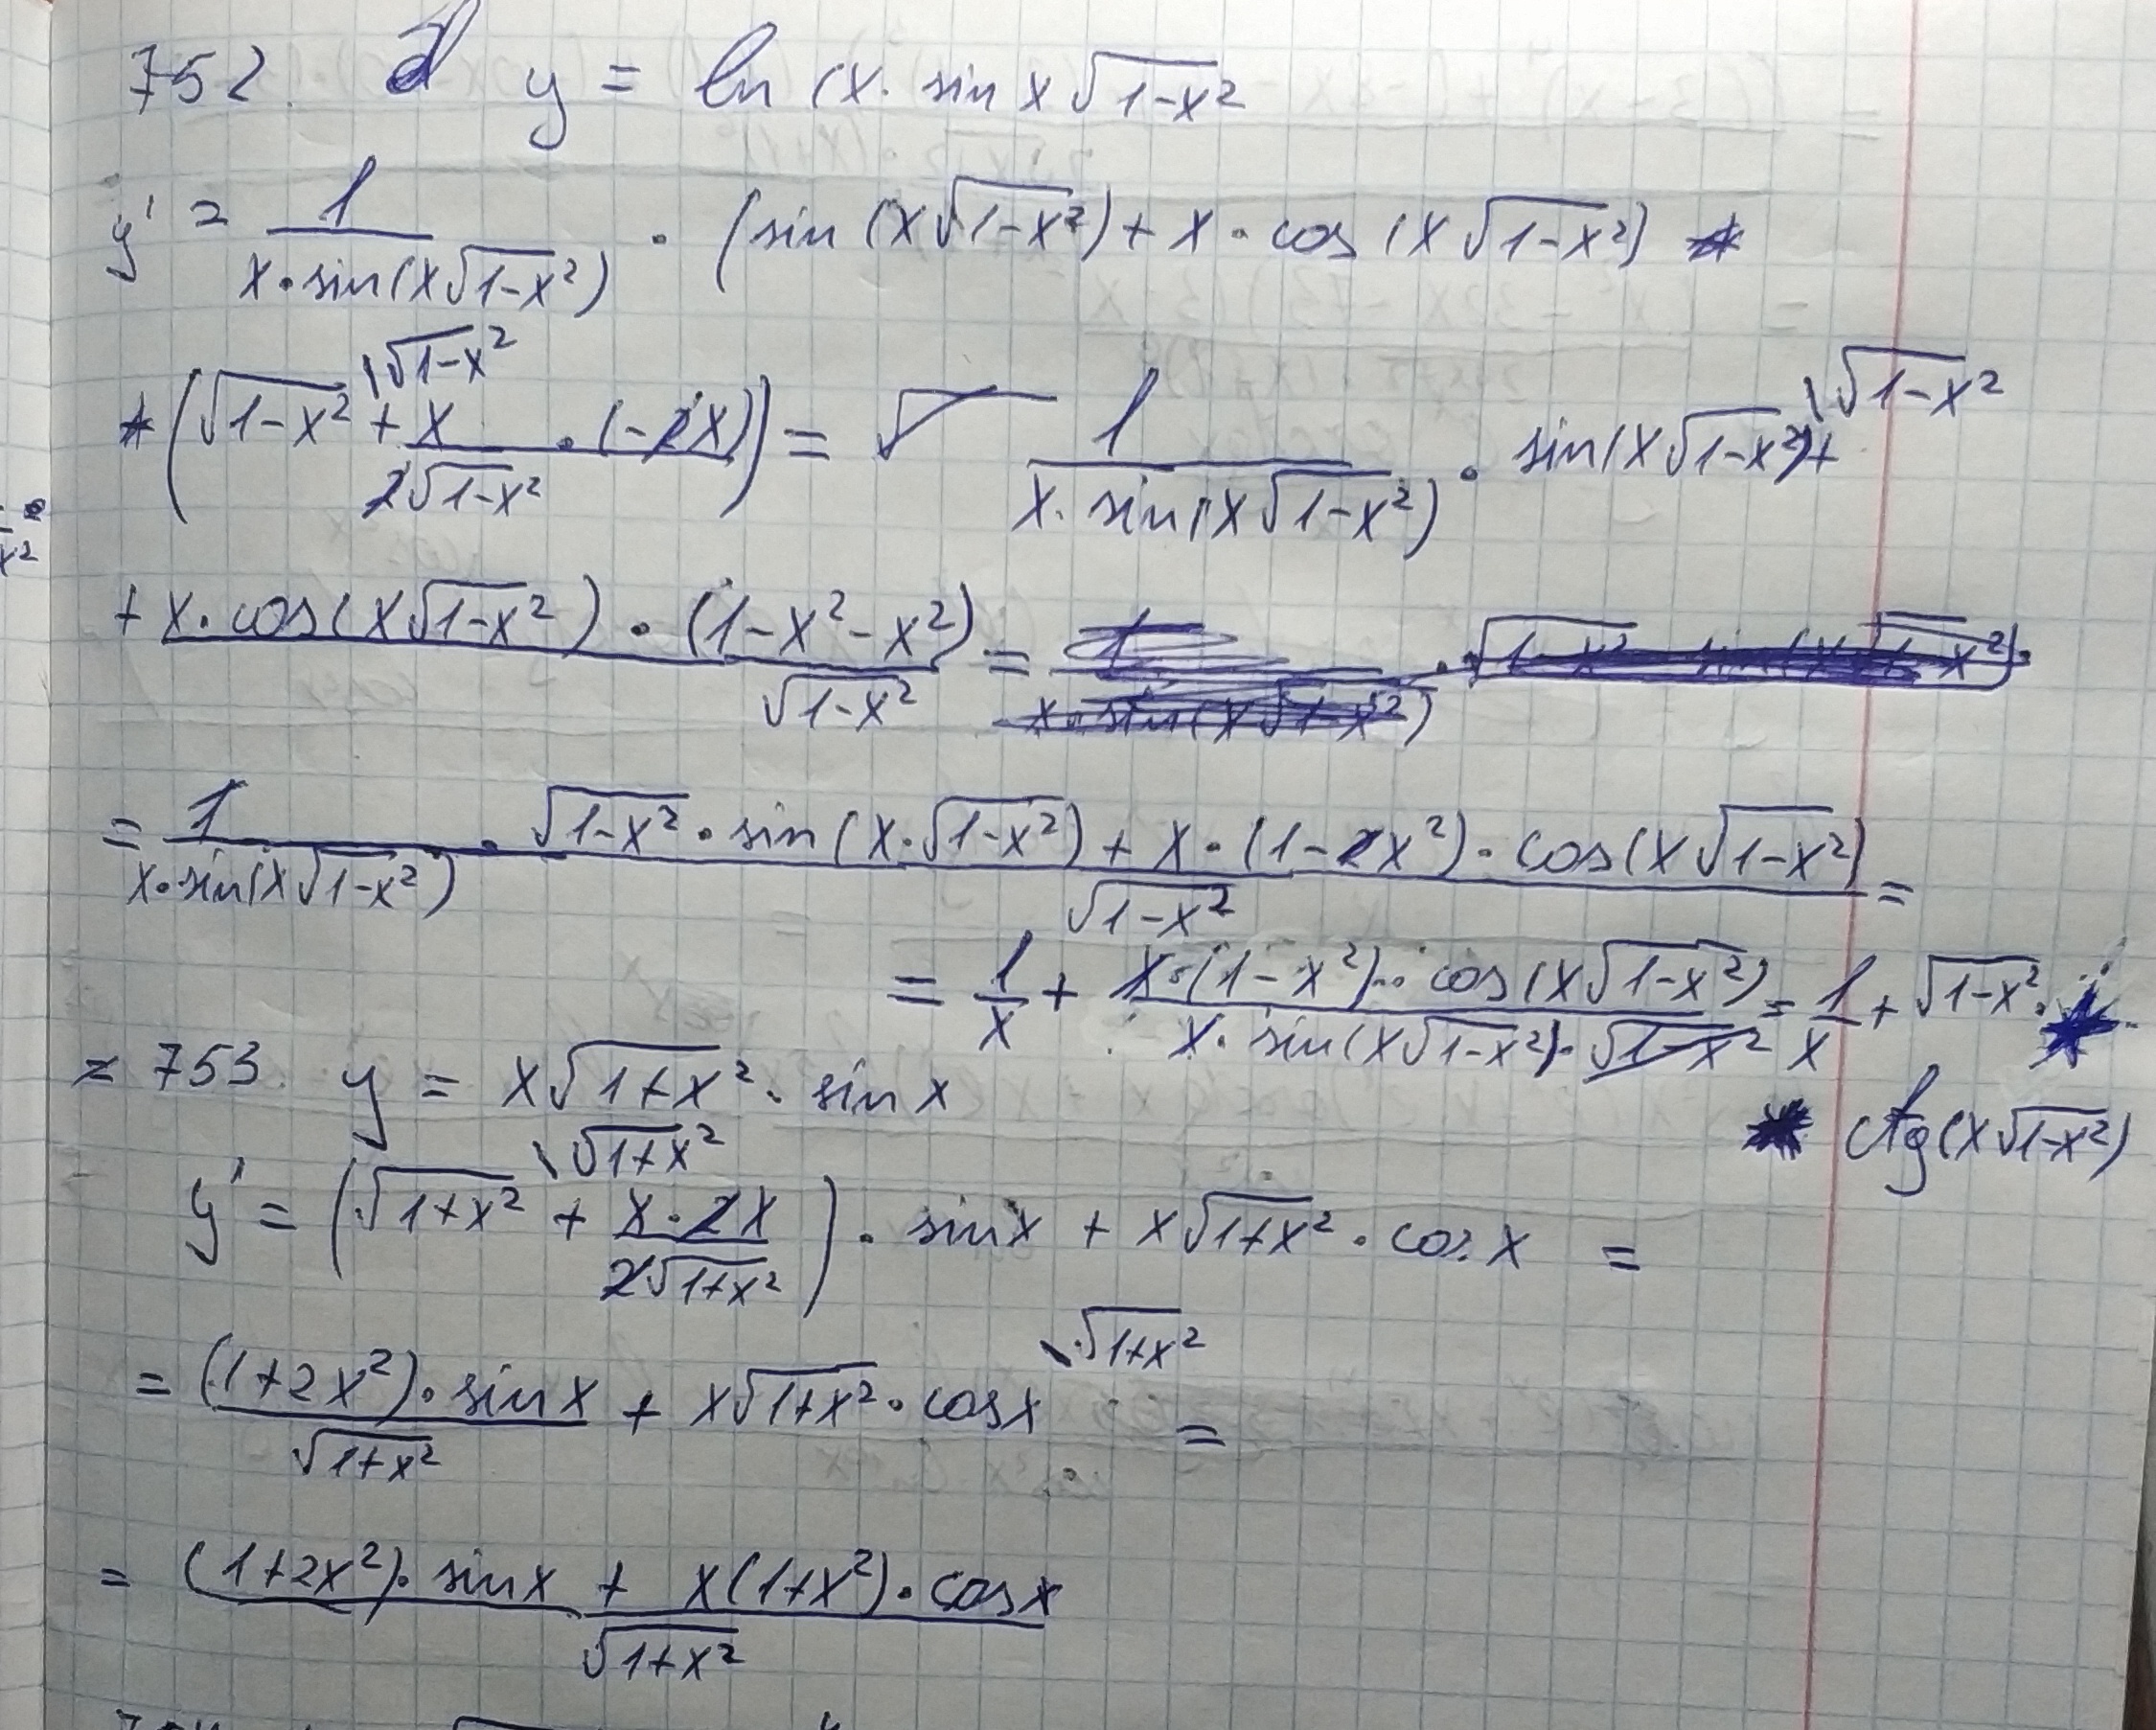 752. y = ln (x · sin x√1-x²
y' = 1/(x·sin(x√1-x²)) · (sin (x√1-x²) + x · cos (x√1-x²) *
* (√1-x² \√1-x² + x/(2√1-x²) · (-2x))) = √ 1/(x · sin(x√1-x²)) · sin(x√1-x²) + \√1-x²
+ x · cos(x√1-x²) · (1-x²-x²)/√1-x² =
= 1/(x·sin(x√1-x²)) · (√1-x² · sin(x·√1-x²) + x · (1-2x²) · cos(x√1-x²))/√1-x² =
= 1/x + (x·(1-x²)·cos(x√1-x²))/(x · sin(x√1-x²)·√1-x²) = 1/x + √1-x² ·
ctg(x√1-x²)
753. y = x√1+x² · sin x
y' = (√1+x² \√1+x² + (x·2x)/(2√1+x²)) · sin x + x√1+x² · cos x =
= ((1+2x²)·sin x)/√1+x² + x√1+x² · cos x \√1+x² =
= ((1+2x²)·sin x + x(1+x²)·cos x)/√1+x²